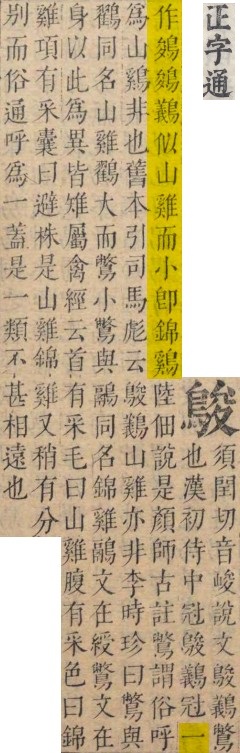 正字通
鵔
須閏切音峻說文鵔鸃鷩
也漢初侍中冠鵔鸃冠一
作鵕鵕鸃似山雞而小卽錦鷄陸佃說是顏師古註鷩謂俗呼
爲山鷄非也舊本引司馬彪云鵔鸃山雞亦非李時珍曰鷩與
鸐同名山雞鸐大而鷩小鷩與鷴同名錦雞鷴文在綬鷩文在
身以此爲異皆雉屬禽經云首有采毛曰山雞腹有采色曰錦
雞項有采囊曰避株是山雞錦雞又稍有分
別而俗通呼爲一蓋是一類不甚相遠也